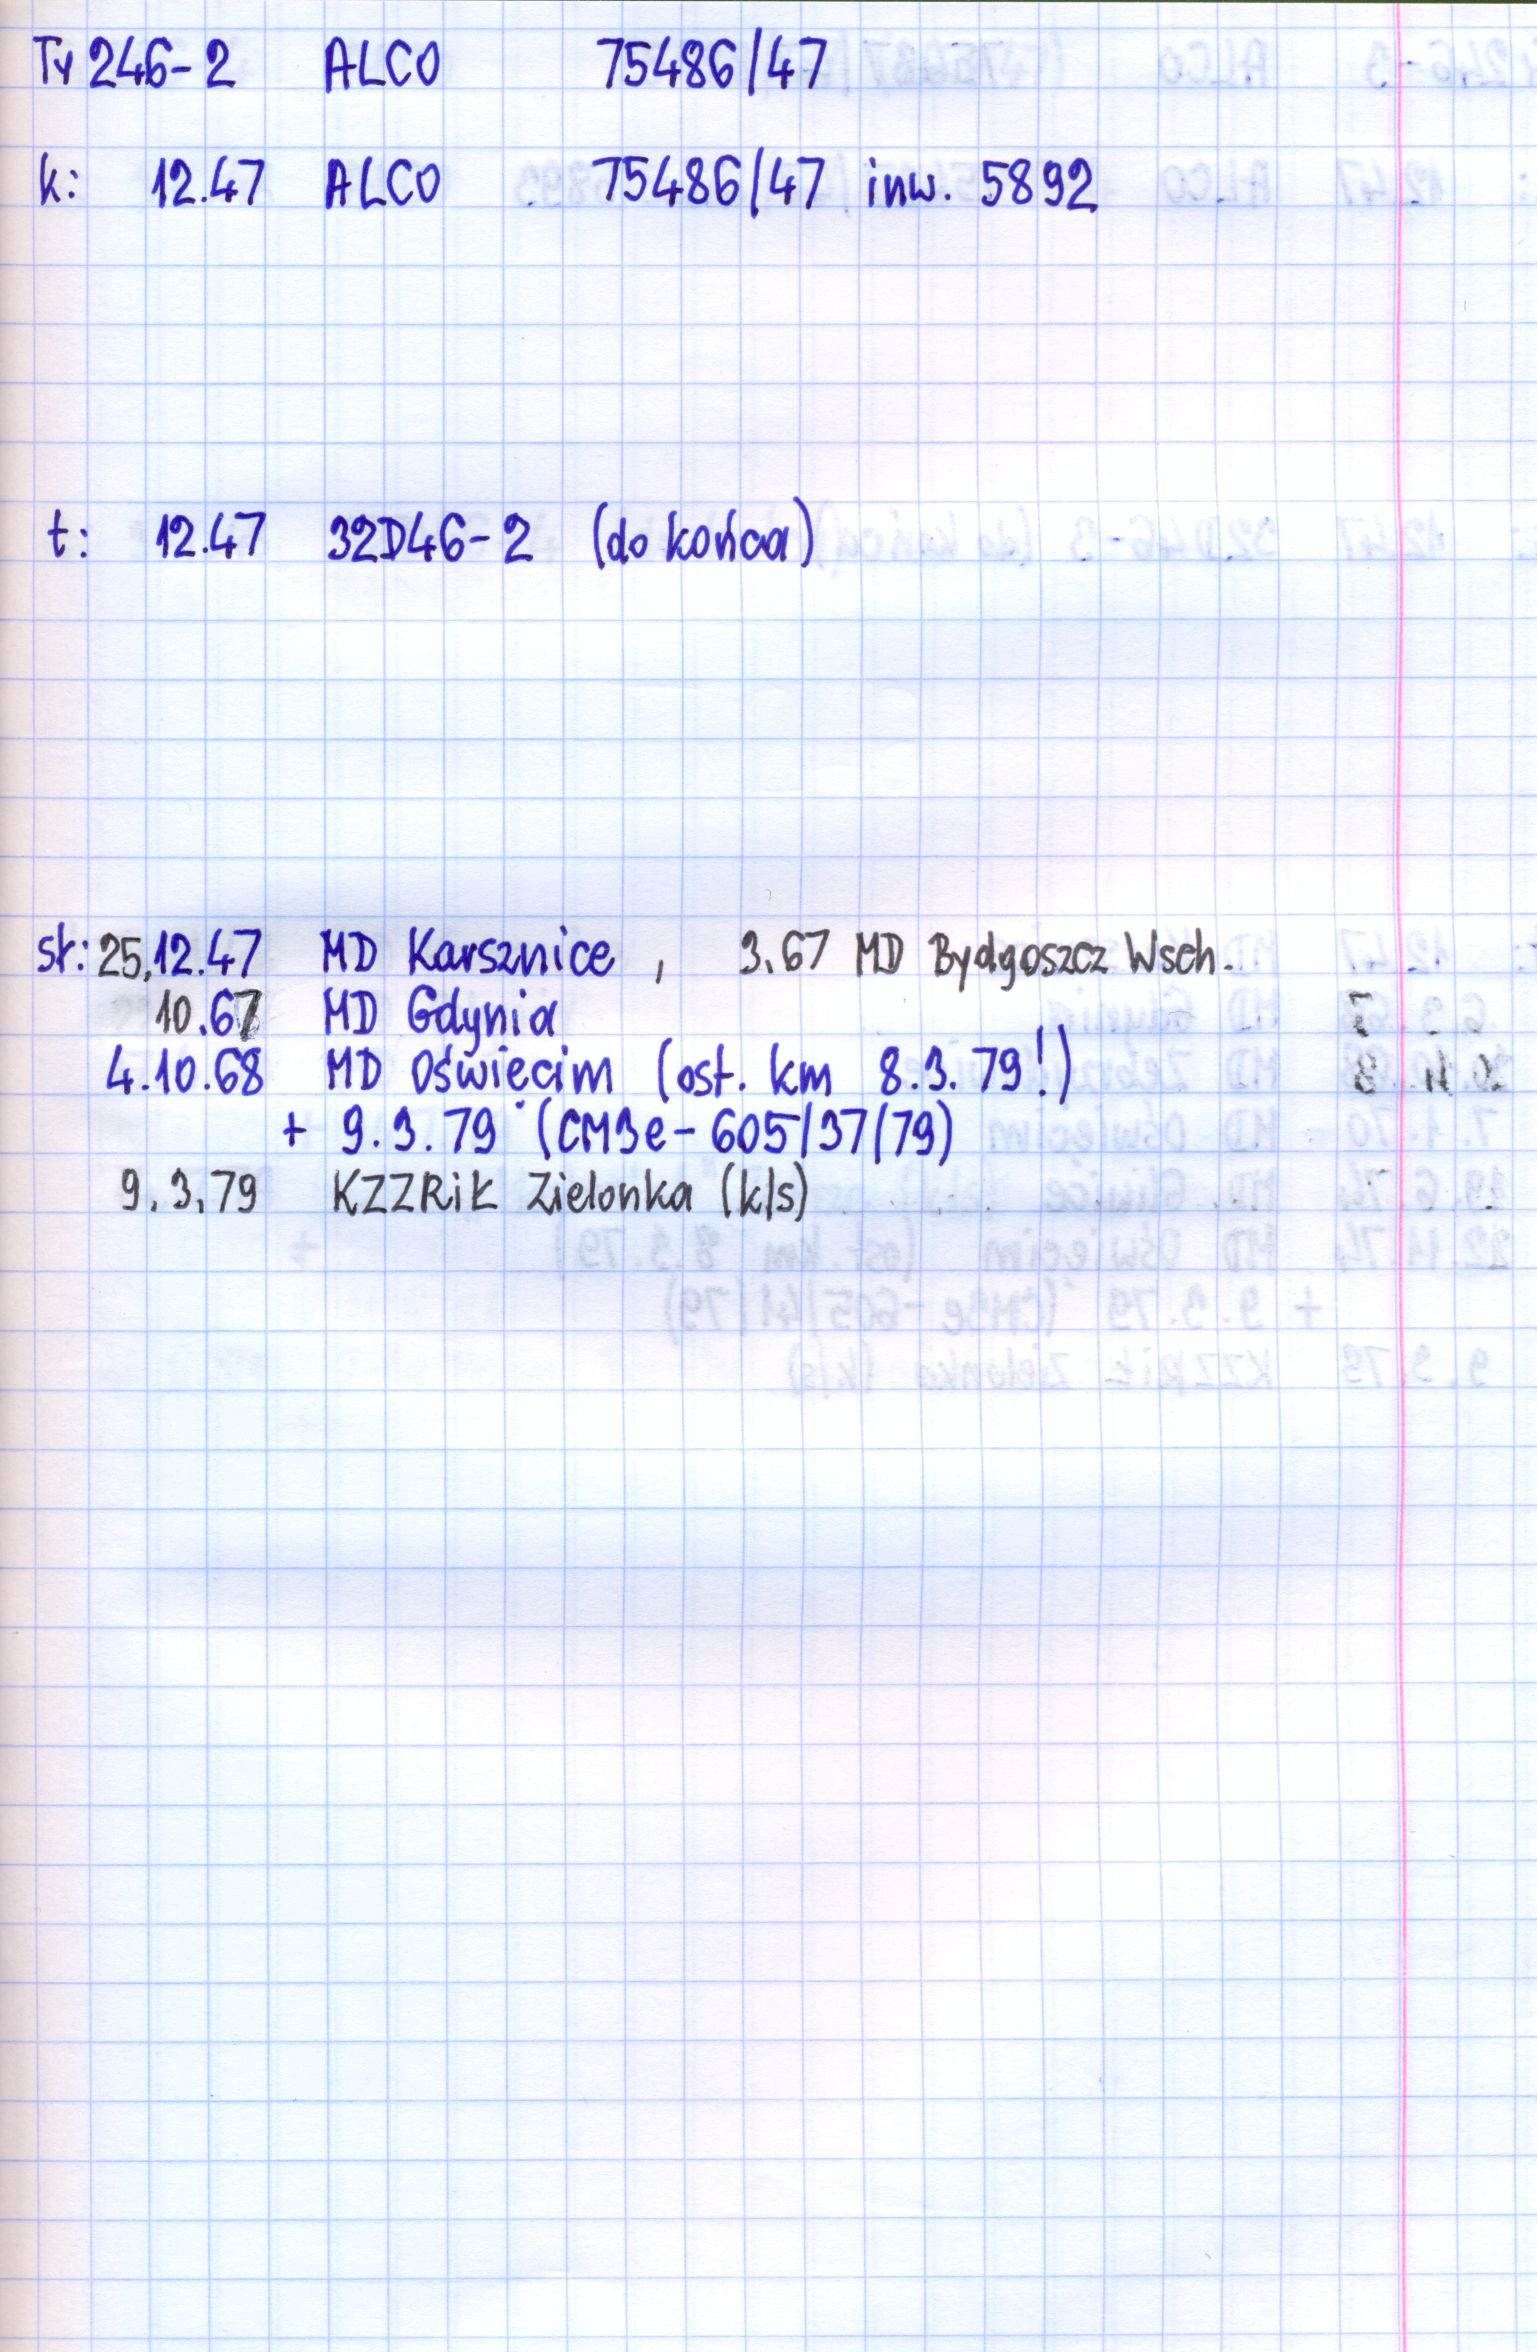 Ty246-2 ALCO 75486/47
k: 12.47 ALCO 75486/47 inw. 5892
t: 12.47 32D46-2 (do końca)
st: 25.12.47 MD Karsznice , 3.67 MD Bydgoszcz Wsch.
10.67 MD Gdynia
4.10.68 MD Oświęcim (ost. km 8.3.79!)
+ 9.3.79 (CM3e-605/37/79)
9.3.79 KZZRiŁ Zielonka (k/s)